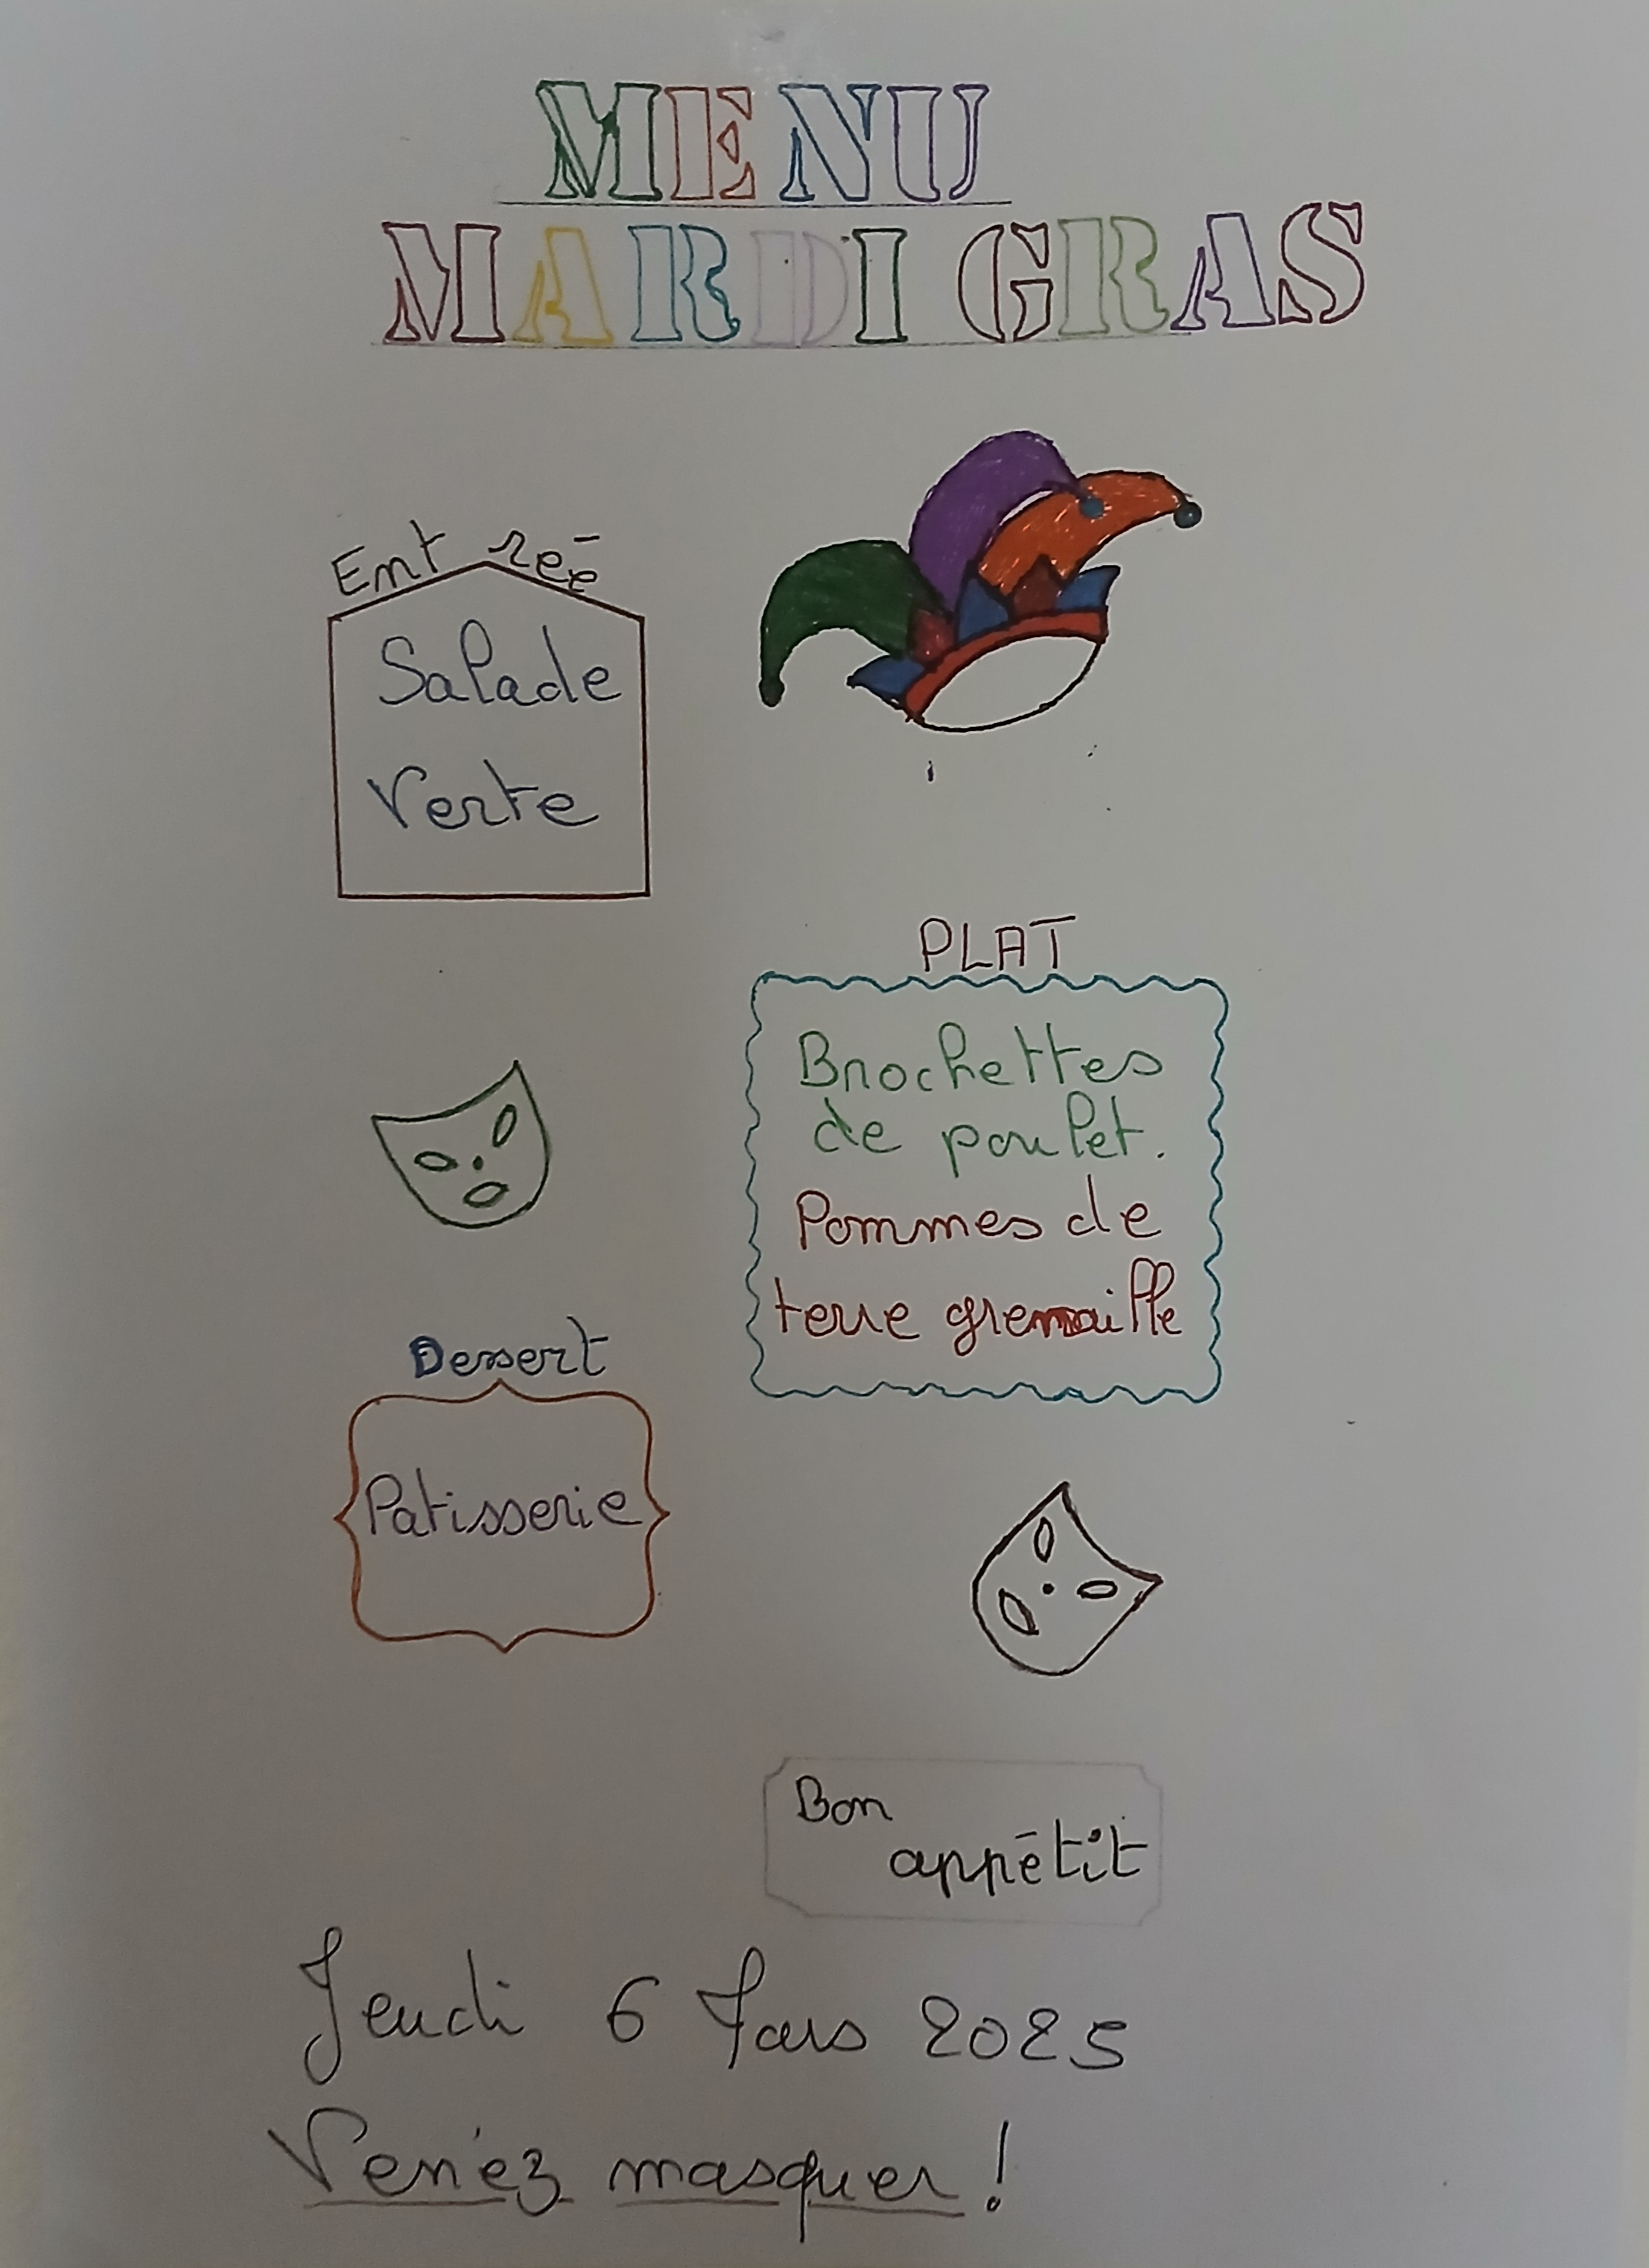 MENU
MARDI GRAS
Entreé
Salade
Verte
PLAT
Brochettes
de poulet.
Pommes de
terre grenaille
Dessert
Patisserie
Bon
appétit
Jeudi 6 Mars 2025
Venéz masquer !